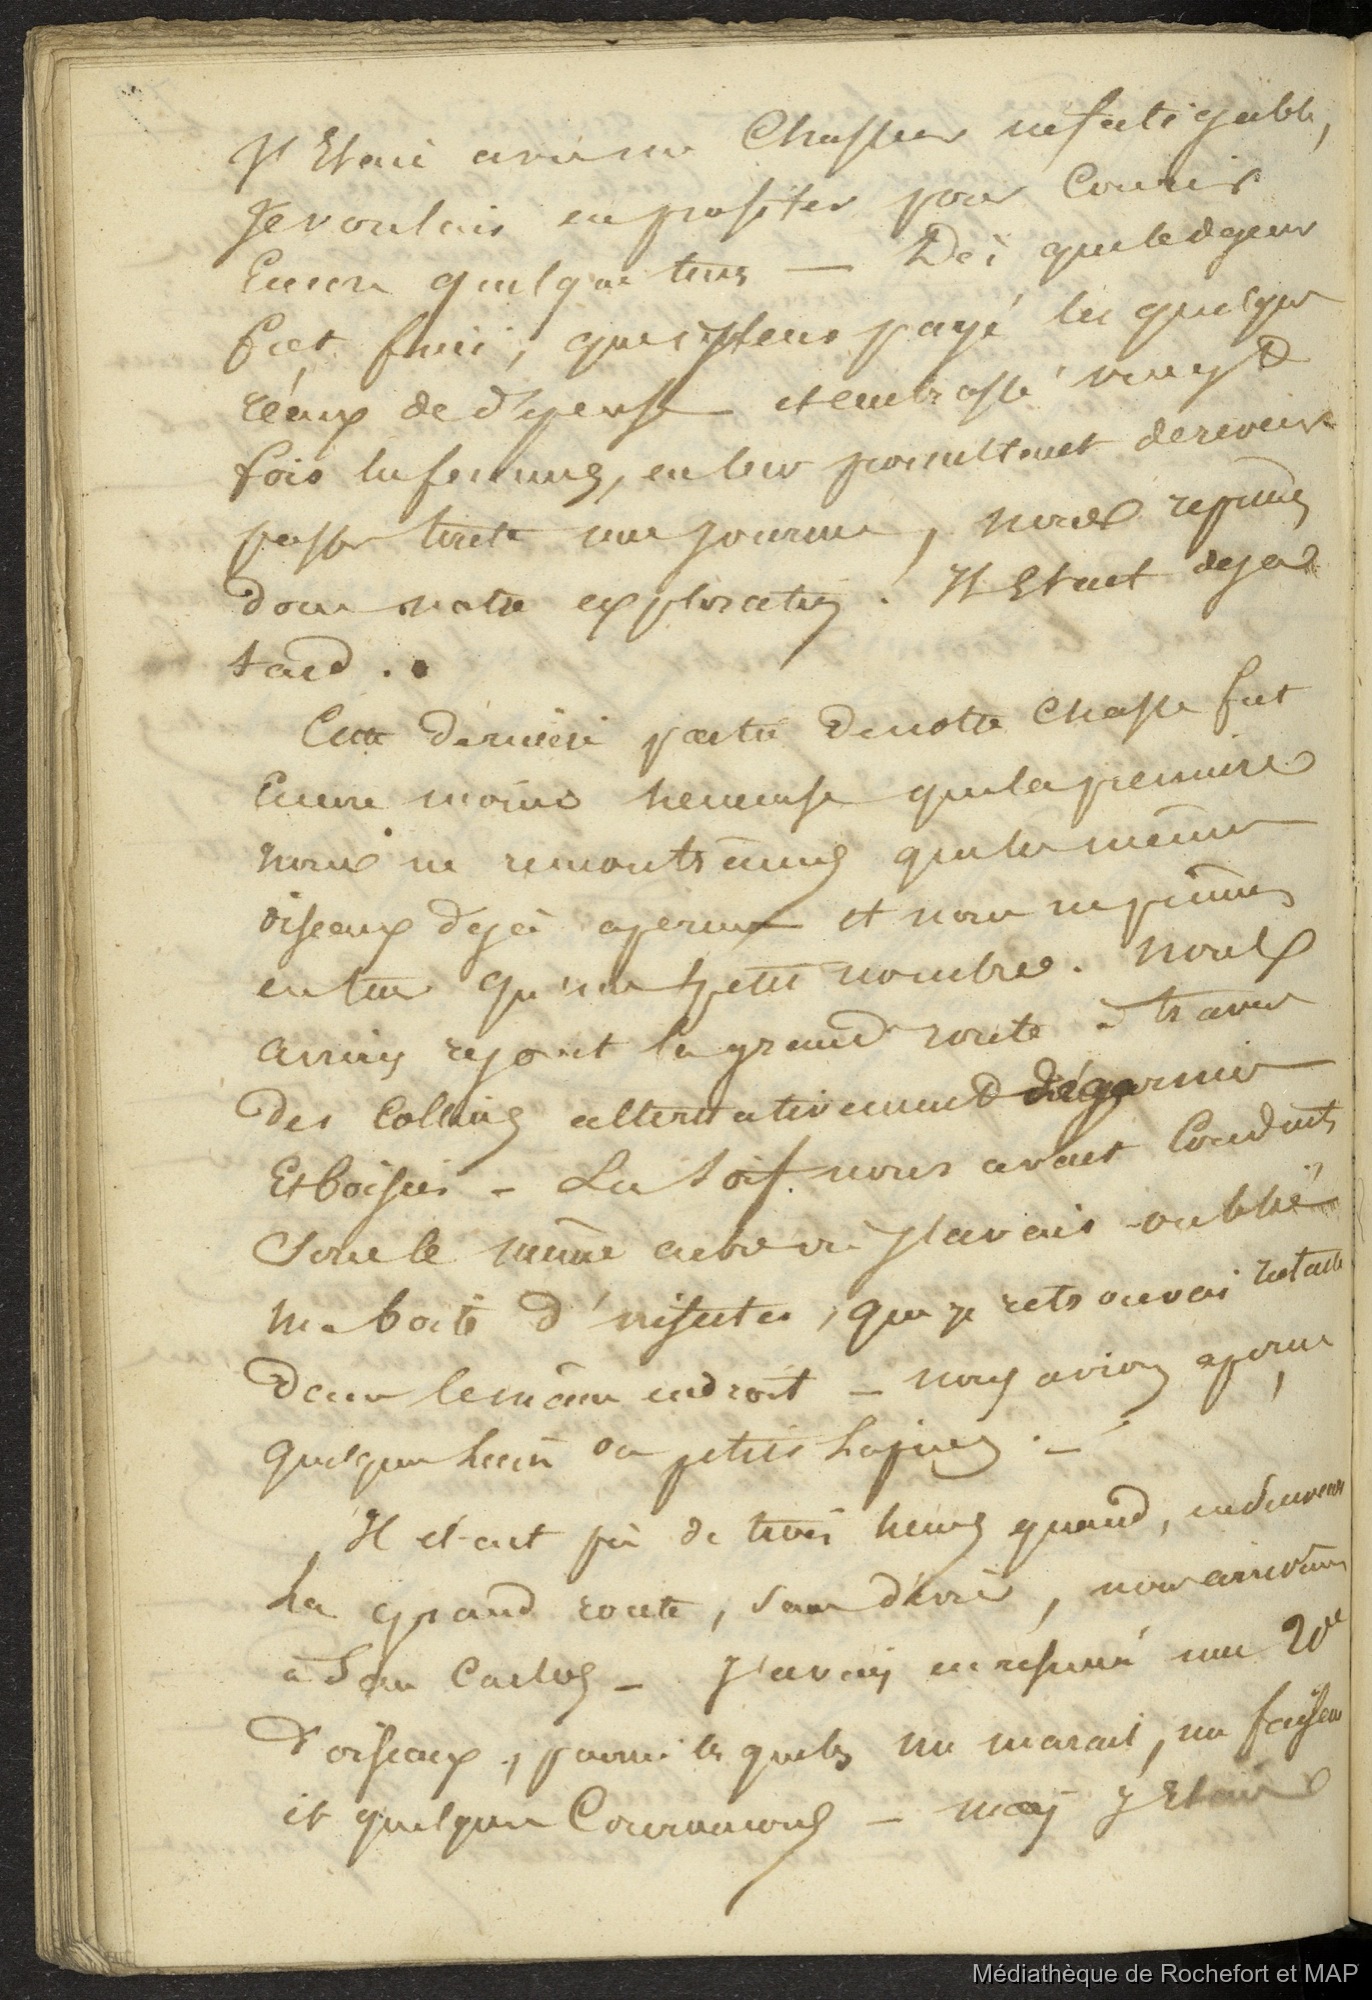 J'Etais avec un Chasseur infatigable,
Je voulais en profiter pour Courir
Encore quelque tems — Dès que le dejeuner
fut fini, que j'eus payé les quelques
réaux de dépense et embrassé vingt
fois les femmes, en leur promettant de revenir
passer toute une journée, nous reprimes
donc notre exploration. Il Etait deja
tard.
Cette dernière partie de notre Chasse fut
Encore moins heureuse que la première
nous ne rencontrâmes que les mêmes
oiseaux dejà aperçus et nous ne pûmes
en tuer qu'un petit nombre. Nous
avions rejoint la grand route à travers
des Collines alternativement dégarnies
Et boisées - La soif nous avait Conduits
Sous le même arbre où j'avais oublié
ma boite d'insectes, que je retrouvai intacte
dans le même endroit — nous avions aperçu
quelques petits Lapins. —
Il était près de trois heures quand,
La grand route, sans dévier, nous arrivâmes
à San Carlos — J'avais en résumé une 20e
d'oiseaux, parmi lesquels un marais, un faisan
et quelques Couroucous — mais J'Etais
Médiathèque de Rochefort et MAP